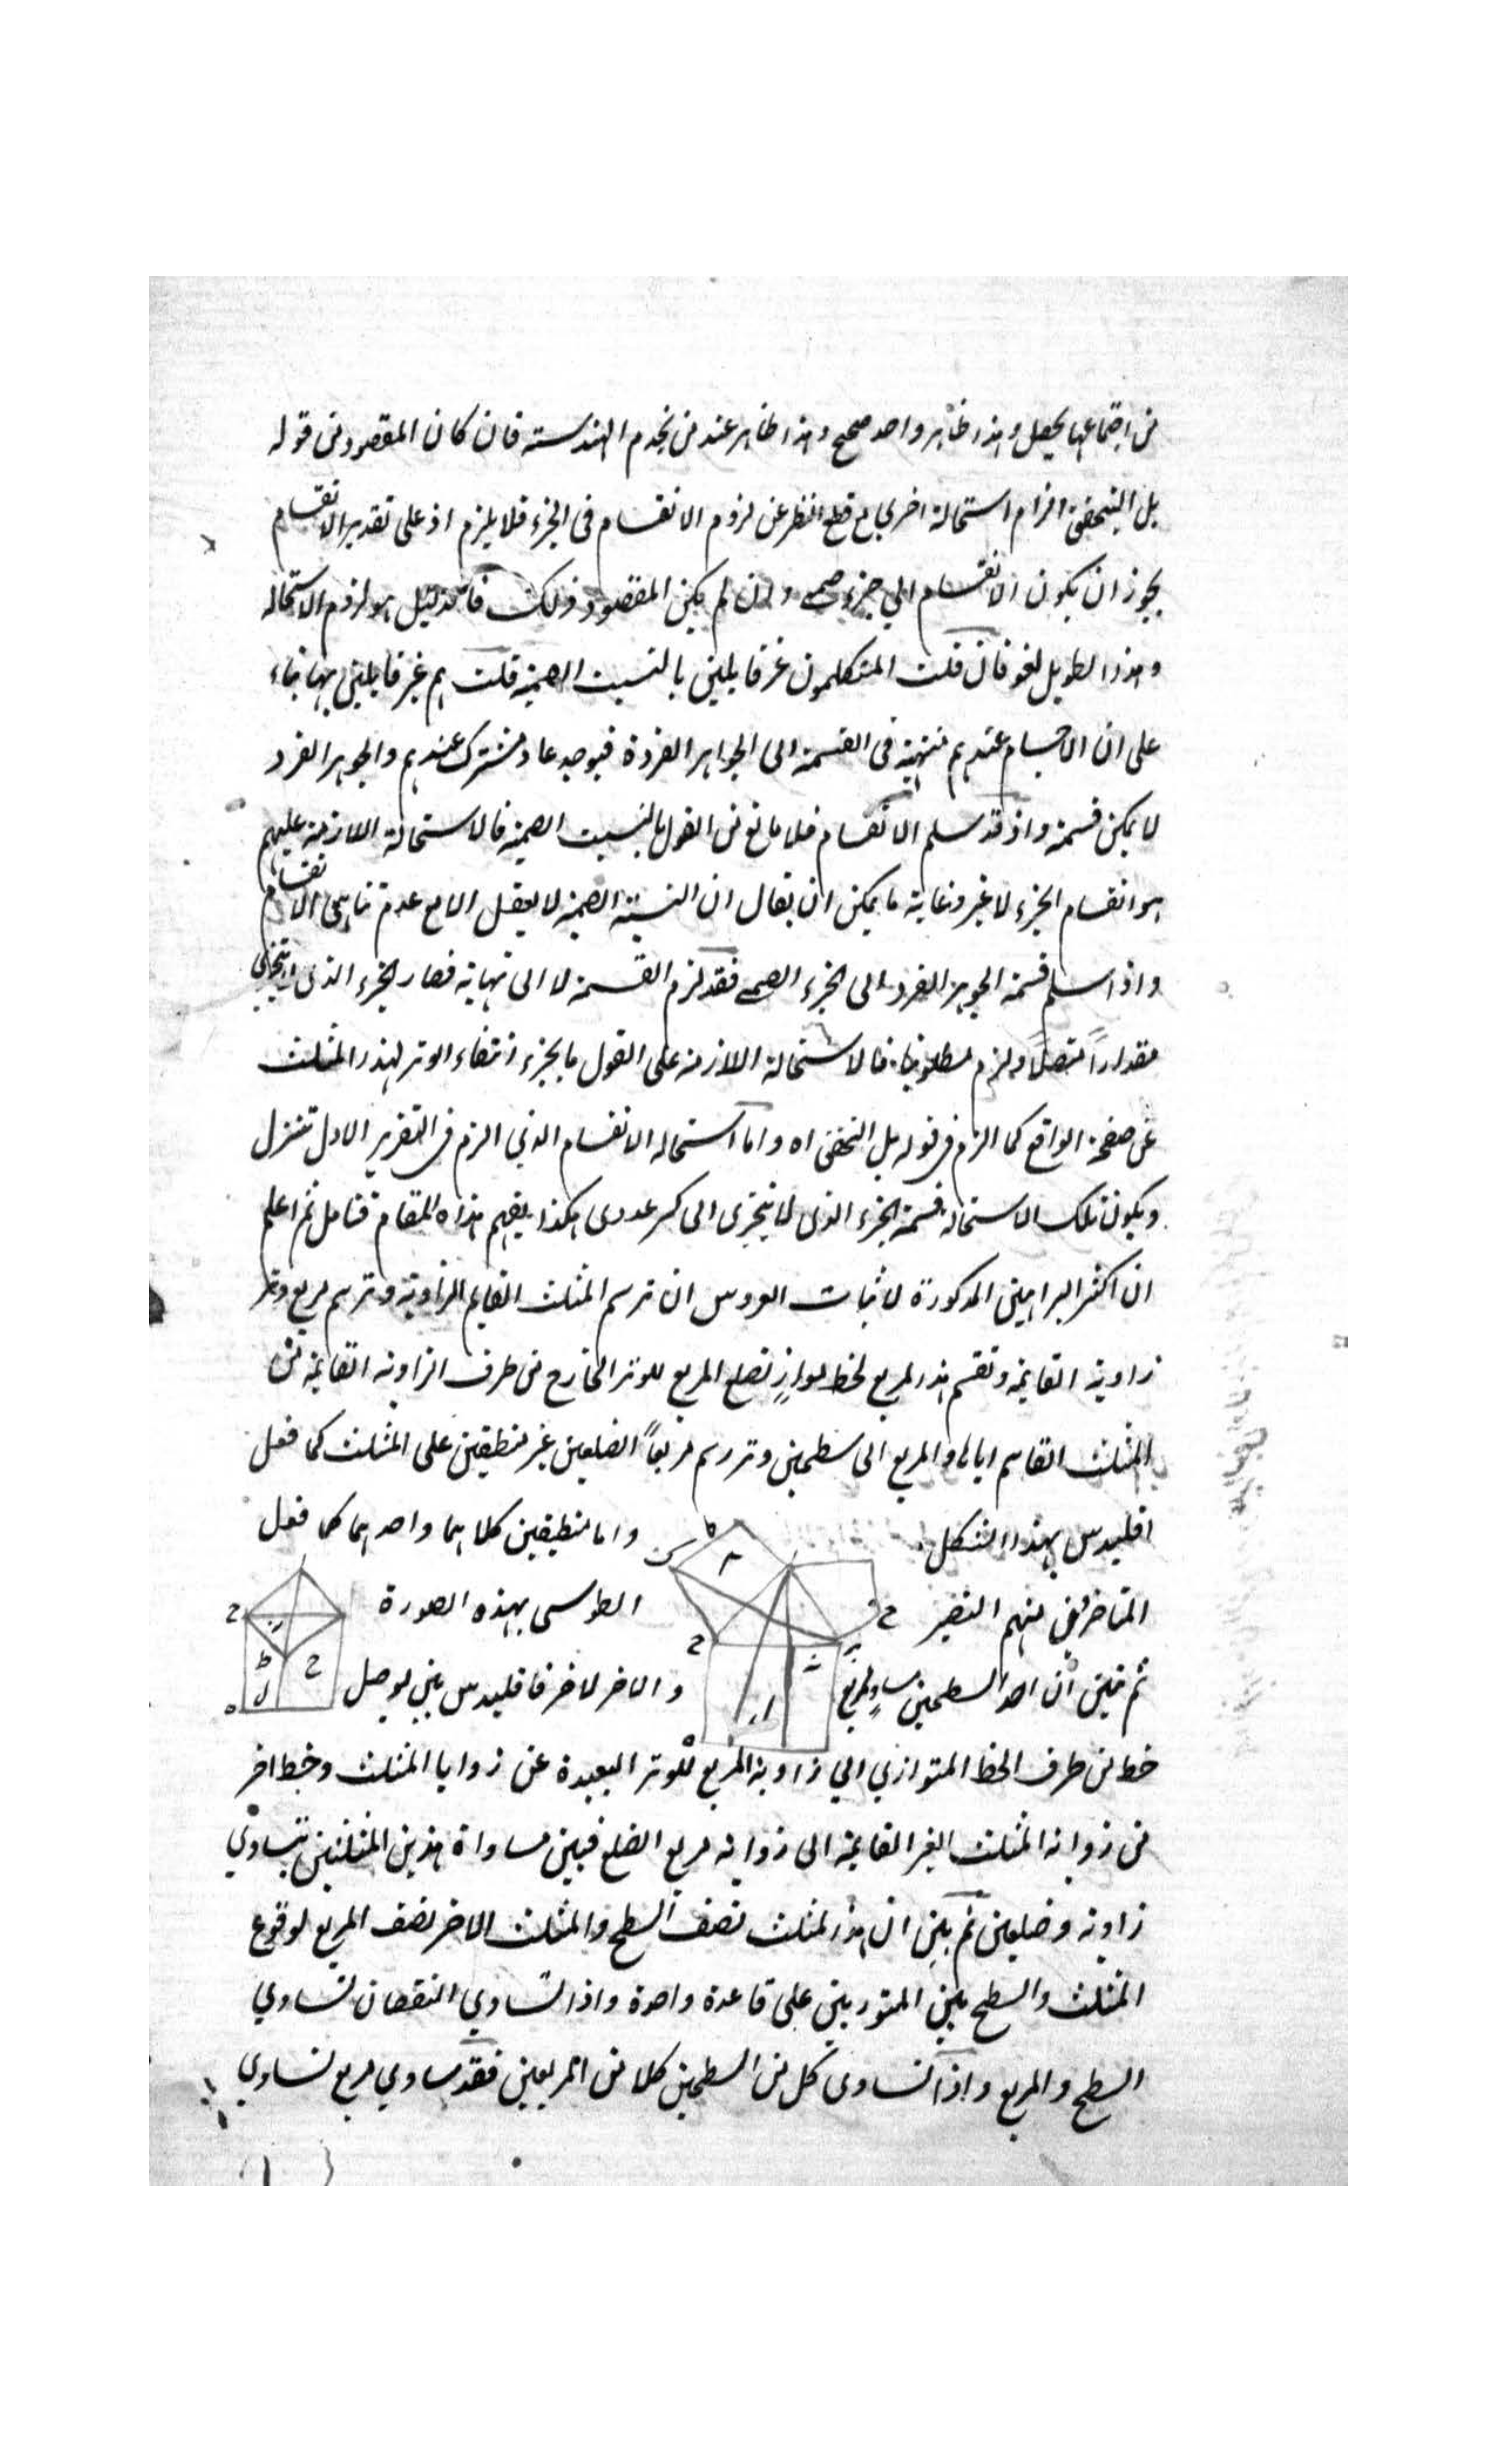 من اجتماعها يحصل وهذا ظاهر واحد صحيح وهذا ظاهر عند من يخدم الهندسة فان كان المقصود من قوله
بل الزام استحالة اخرى مع قطع النظر عن لزوم الانقسام فى الجزء فلا يلزم اذ على تقدير الانقسام
يجوز ان يكون الانقسام الي جزء صم وان لم يكن المقصود ذلك هو لزوم الاستحالة
وهذا الطويل لغو فان قلت المتكلمون غير قايلين بالنسبت الصمية قلت هم غير قايلين بها بناء
على ان الاجسام عندهم منتهية فى القسمة الى الجواهر الفردة فيوجد عاد مشترك عندهم والجوهر الفرد
لا يمكن قسمة واذ قد سلم الانقسام فلا مانع من القول بالنسبت الصمية فالاستحالة اللازمة عليهم
هو انقسام الجزء لا غير وغاية ما يمكن ان يقال ان النسبة الصمية لا يعقل الا مع عدم تناهى الانقسام
واذا سلم قسمة الجوهر الفرد الى الجزء الصم فقد لزم القسمة لا الى نهاية فصار الجزء الذى لا يتجزى
مقداراً متصلاً ولزم مطلوبنا فالاستحالة اللازمة على القول بالجزء انتفاء الوتر لهذا المثلث
عن صفحة الواقع كما الزم فى قوله بل اه واما استحالة الانقسام الذي الزم فى التقرير الاول تنزل
ويكون تلك الاستحالة قسمة الجزء الذى لا يتجزى الى كسر عددى هكذا يفهم هذا المقام فتامل ثم اعلم
ان اكثر البراهين المذكورة لاثبات العروس ان ترسم المثلث القايم الزاوية وترسم مربع وتر
زاوية القايمة وتقسم هذا المربع بخط مواز لضلع المربع للوتر الخارج من طرف الزاوية القايمة من
المثلث القاسم اياه والمربع الى سطحين وترسم مربعاً الضلعين غير منطبقين على المثلث كما فعل
اقليدس بهذا الشكل واما منطبقين كلاهما واحدهما كما فعل
المتاخرين منهم النصير الطوسى بهذه الصورة
ثم تبين ان احد السطحين مساو لمربع والاخر لاخر فاقليدس بين يوصل
خط من طرف الخط المتوازي الي زاوية المربع للوتر البعيدة عن زوايا المثلث وخط اخر
من زواية المثلث الغير القايمة الى زواية مربع الضلع فبين مساواة هذين المثلثين بتساوي
زاوية وضلعين ثم بين ان هذا المثلث نصف السطح والمثلث الاخر نصف المربع لوقوع
المثلث والسطح بين المتوازيين على قاعدة واحدة واذا تساوي النقصان تساوي
السطح والمربع واذا تساوى كل من السطحين كلا من المربعين فقد ساوي مربع تساوي